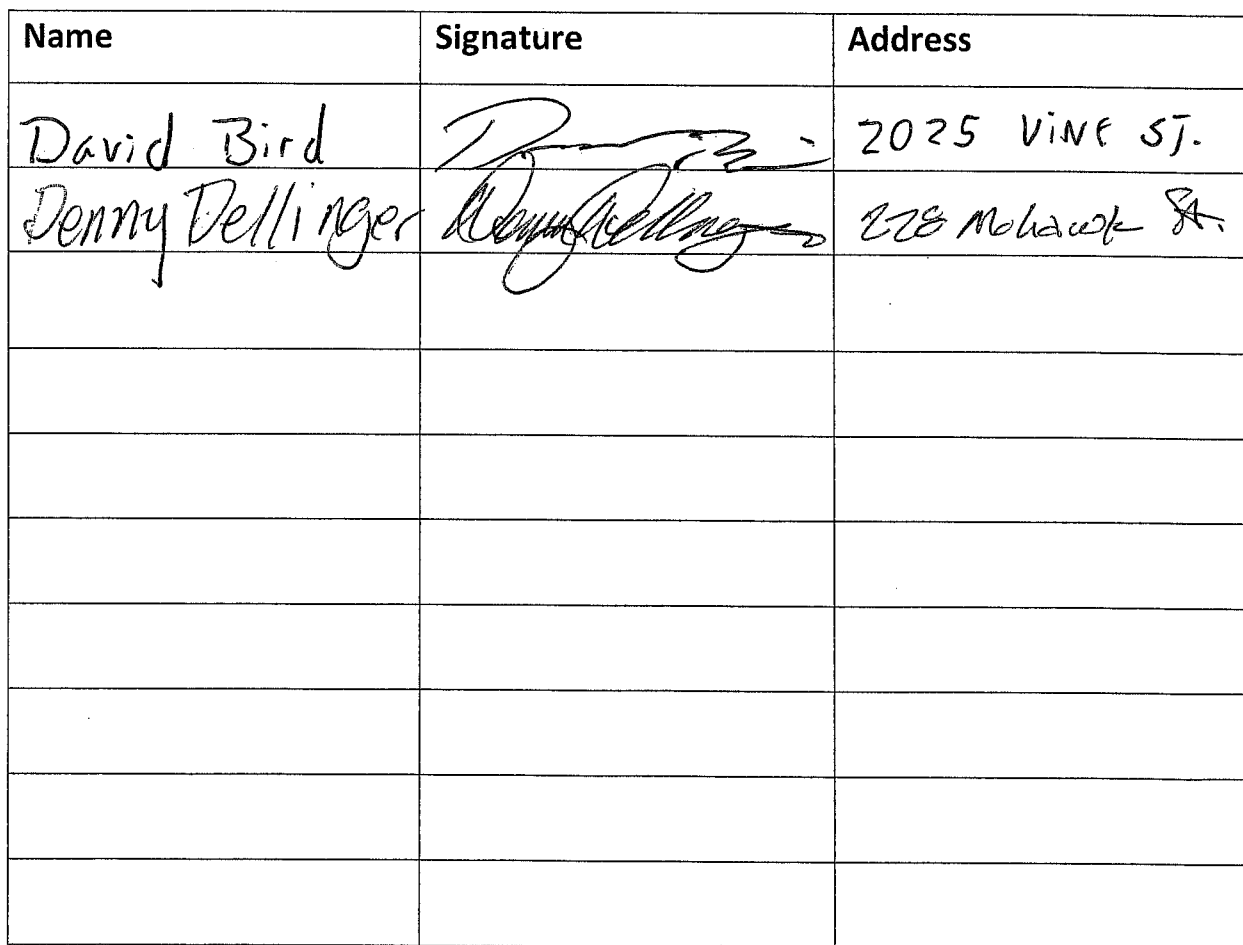 Name Signature Address
David Bird 2025 ViNE ST.
Denny Dellinger Denny Dellinger 228 Mohawk St.